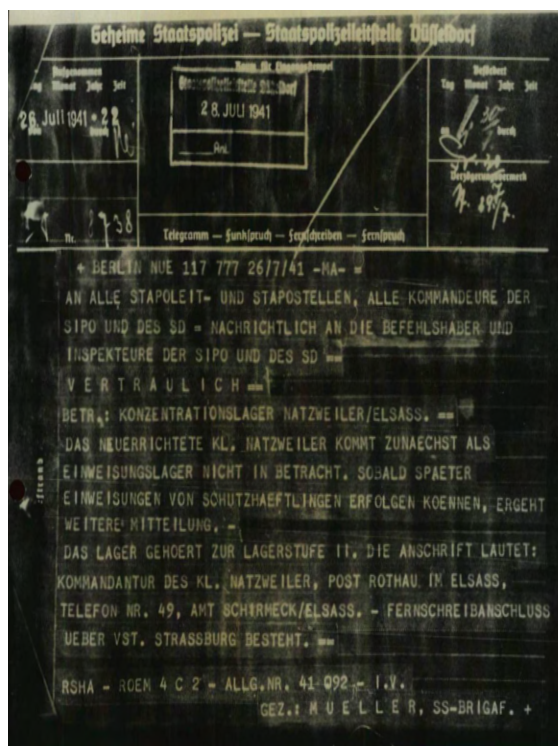 Geheime Staatspolizei — Staatspolizeileitstelle Düsseldorf
Aufgenommen
Monat Jahr Zeit
26. Juli 1941 • 22
durch
Raum für Eingangsstempel
Staatspolizeileitstelle Düsseldorf
28. JULI 1941
Anl.
Befördert
Tag Monat Jahr Zeit
durch
Verzögerungsvermerk
Nr.
Telegramm — Funkspruch — Fernschreiben — Fernspruch
+ BERLIN NUE 117 777 26/7/41 -MA- =
AN ALLE STAPOLEIT- UND STAPOSTELLEN, ALLE KOMMANDEURE DER
SIPO UND DES SD = NACHRICHTLICH AN DIE BEFEHLSHABER UND
INSPEKTEURE DER SIPO UND DES SD ==
V E R T R A U L I C H ==
BETR.: KONZENTRATIONSLAGER NATZWEILER/ELSASS. ==
DAS NEUERRICHTETE KL. NATZWEILER KOMMT ZUNAECHST ALS
EINWEISUNGSLAGER NICHT IN BETRACHT. SOBALD SPAETER
EINWEISUNGEN VON SCHUTZHAEFTLINGEN ERFOLGEN KOENNEN, ERGEHT
WEITERE MITTEILUNG. -
DAS LAGER GEHOERT ZUR LAGERSTUFE II. DIE ANSCHRIFT LAUTET:
KOMMANDANTUR DES KL. NATZWEILER, POST ROTHAU IM ELSASS,
TELEFON NR. 49, AMT SCHIRMECK/ELSASS. - FERNSCHREIBANSCHLUSS
UEBER VST. STRASSBURG BESTEHT. ==
RSHA - ROEM 4 C 2 - ALLG.NR. 41 092 - I.V.
GEZ.: M U E L L E R, SS-BRIGAF. +